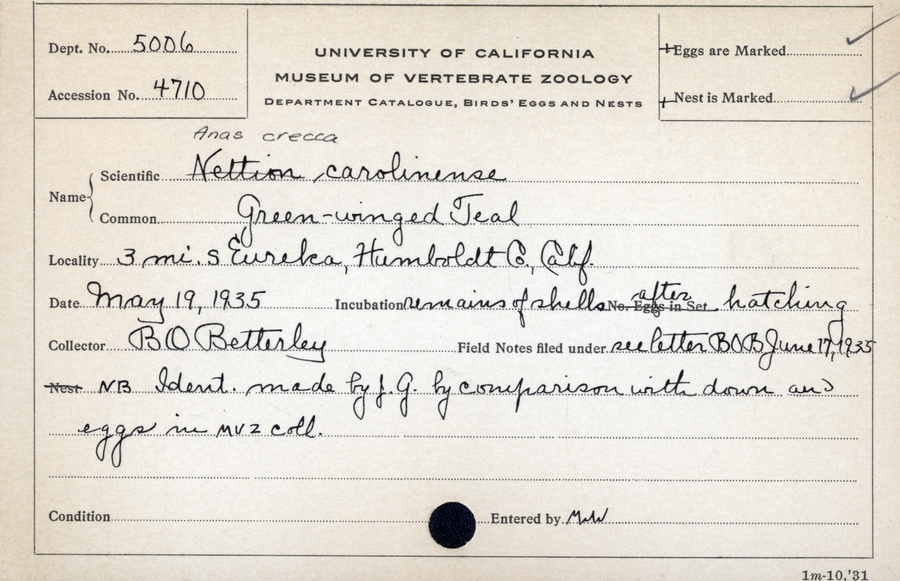 Dept. No. 5006
Accession No. 4710
UNIVERSITY OF CALIFORNIA
MUSEUM OF VERTEBRATE ZOOLOGY
DEPARTMENT CATALOGUE, BIRDS' EGGS AND NESTS
Eggs are Marked
Nest is Marked
Anas crecca
Name Scientific Nettion carolinense
Common Green-winged Teal
Locality 3 mi. S Eureka, Humboldt Co., Calif.
Date May 19, 1935 Incubation remains of shells No. Eggs in Set after hatching
Collector B O Betterley Field Notes filed under see letter BOB June 17, 1935
Nest NB Ident. made by J. G. by comparison with down and
eggs in MVZ coll.
Condition Entered by
1m-10,'31